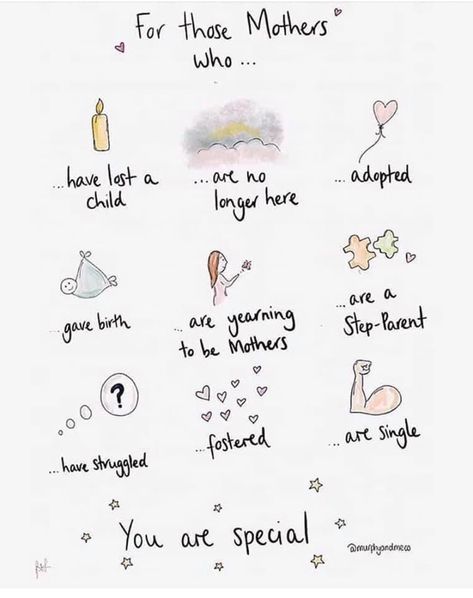 For those Mothers
who ...
...have lost a
child
...are no
longer here
... adopted
...gave birth
... are yearning
to be Mothers
...are a
Step-Parent
?
...have struggled
...fostered
... are single
You are special
@murphyandmeco